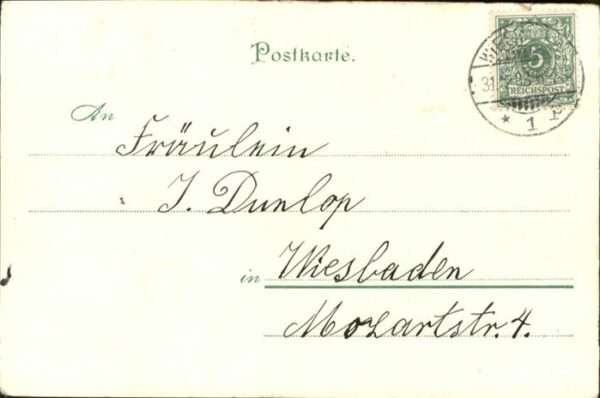 Postkarte.
5
REICHSPOST
31.
* 1
An
Fräulein
J. Dunlop
in Wiesbaden
Mozartstr. 4.